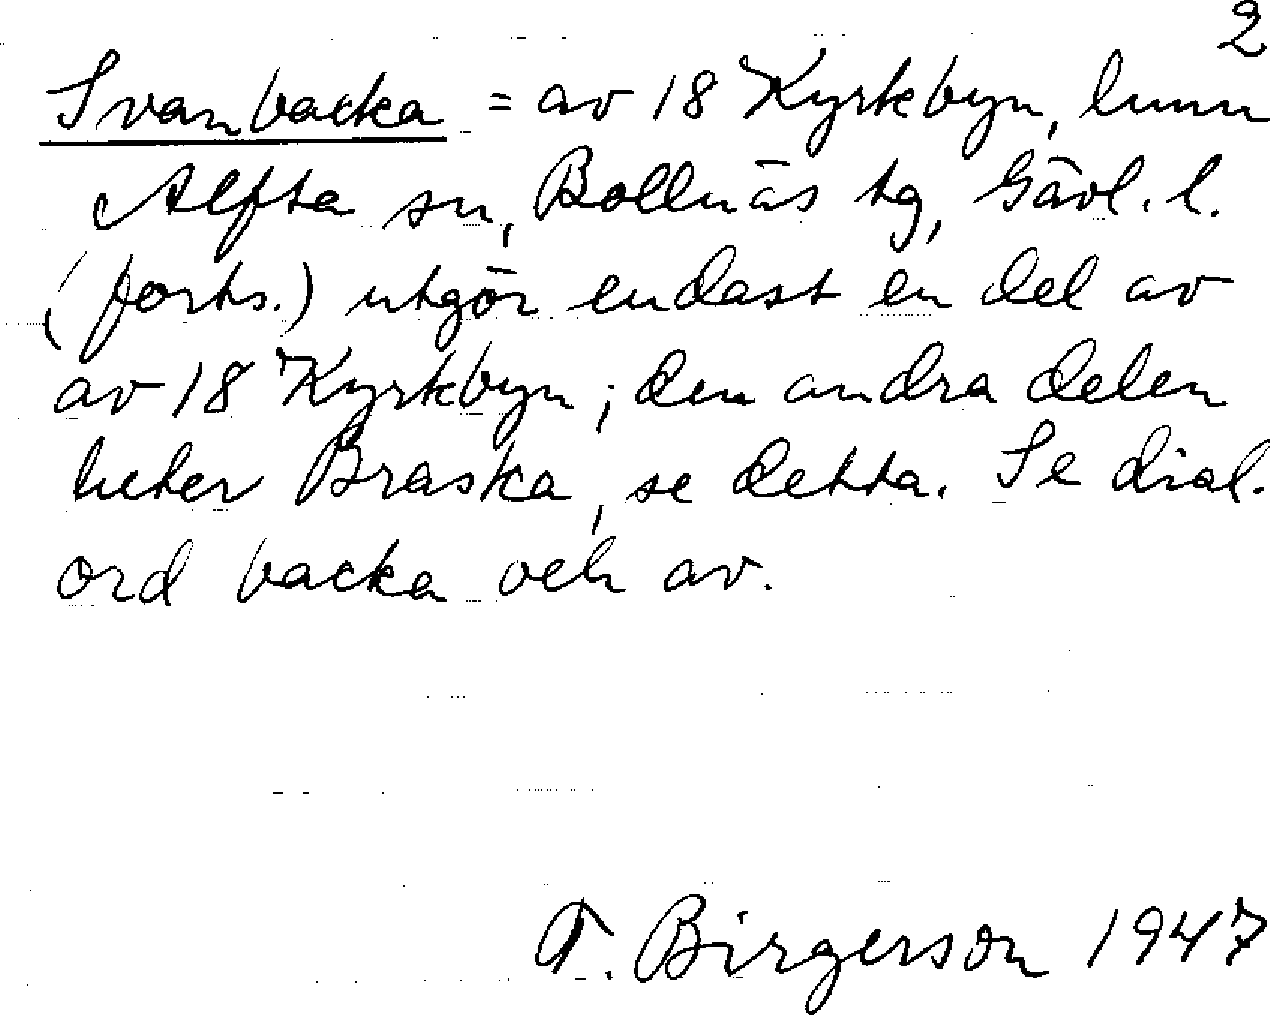 2
Svanbacka = av 18 Kyrkbyn,
Alfta sn, Bollnäs tg, Gävl. l.
(forts.) utgör endast en del av
av 18 Kyrkbyn; den andra delen
heter Braska, se detta. Se dial.
ord backa och av.
T. Birgerson 1947